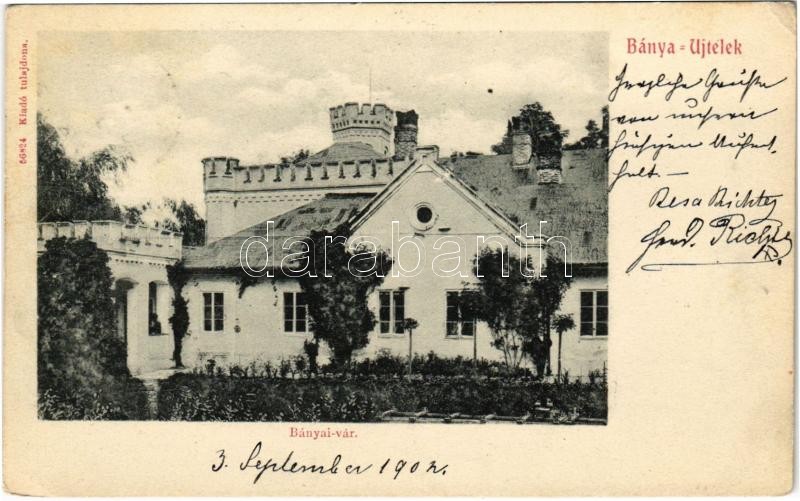 66824 Kiadó tulajdona.
Bánya-Ujtelek
Herzliche Grüsse
von unserm
hiesigen Aufent
halt.
Resa Richter
Ferd. Richter
darabanth
Bányai-vár.
3. September 1902.